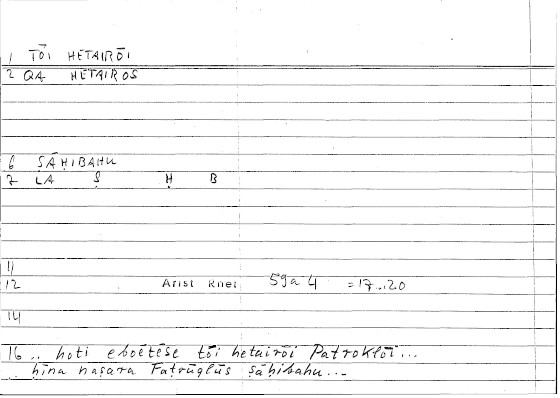 1 TŌI HETAIRŌI
2 QA HETAIROS
6 ṢĀḤIBAHU
7 LA Ṣ Ḥ B
11
12 Arist Rhet 59a4 =17..20
14
16 .. hoti eboēthēse tōi hetairōi Patroklōi...
ḥīna naṣara Faṭrūqlūs ṣāḥibahu...